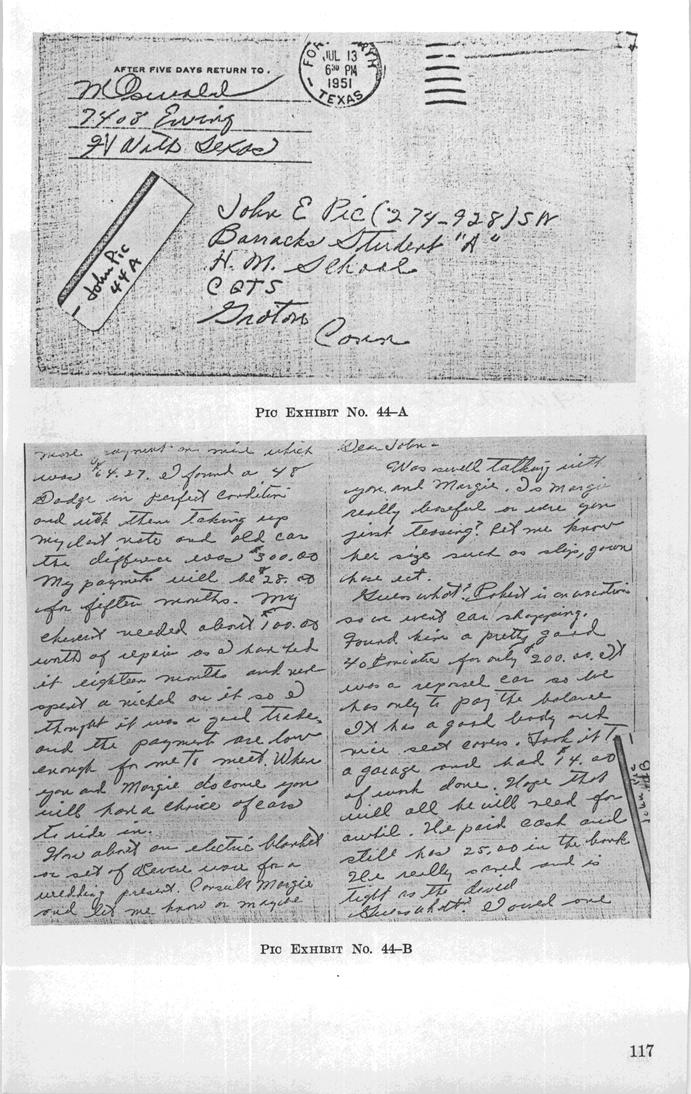 AFTER FIVE DAYS RETURN TO
M Oswald
7408 Ewing
Ft Wlth Texas
FORT WORTH
JUL 13
6 30 PM
1951
TEXAS
John Pic
44 A
John E Pic (274-928) SN
Barracks Student "A"
H. M. School
CGTS
Groton
Conn
PIC EXHIBIT No. 44-A
Dear John-
Was swell talking with
you and Margie. Is Margie
really or were you
just teasing? Let me know
her size such as slip, gown
hose ect.
Guess what? Robert is on vacation
so we went car shopping.
Found him a pretty good
40 Pontiac for only $200.00. It
was a reposel car so we
has only to pay the balance
It has a good body and
nice seat covers. Took it to
a garage and had $14.00
of work done. Hope that
will all he will need for
awhile. He paid cash and
still has 25.00 in the bank
He really saved and is
tight as the devil
Guess what? I owed one
John Pic
44B
more payment on mine which
was $64.27. I found a 48
Dodge in perfect condition
and with them taking up
my last note and old car
the difference was $300.00
My payments will be $28.00
for fifteen months. My
chevert needed about $100.00
worth of repairs as I han had
it eighteen months and never
spent a nickel on it so I
thought it was a good trade
and the payment are low
enough for me to meet. When
you and Margie do come you
will have a choice of cars
to ride in.
How about an electric blanket
or set of Revere ware for a
wedding present. Consult Margie
and let me know or maybe
PIC EXHIBIT No. 44-B
117